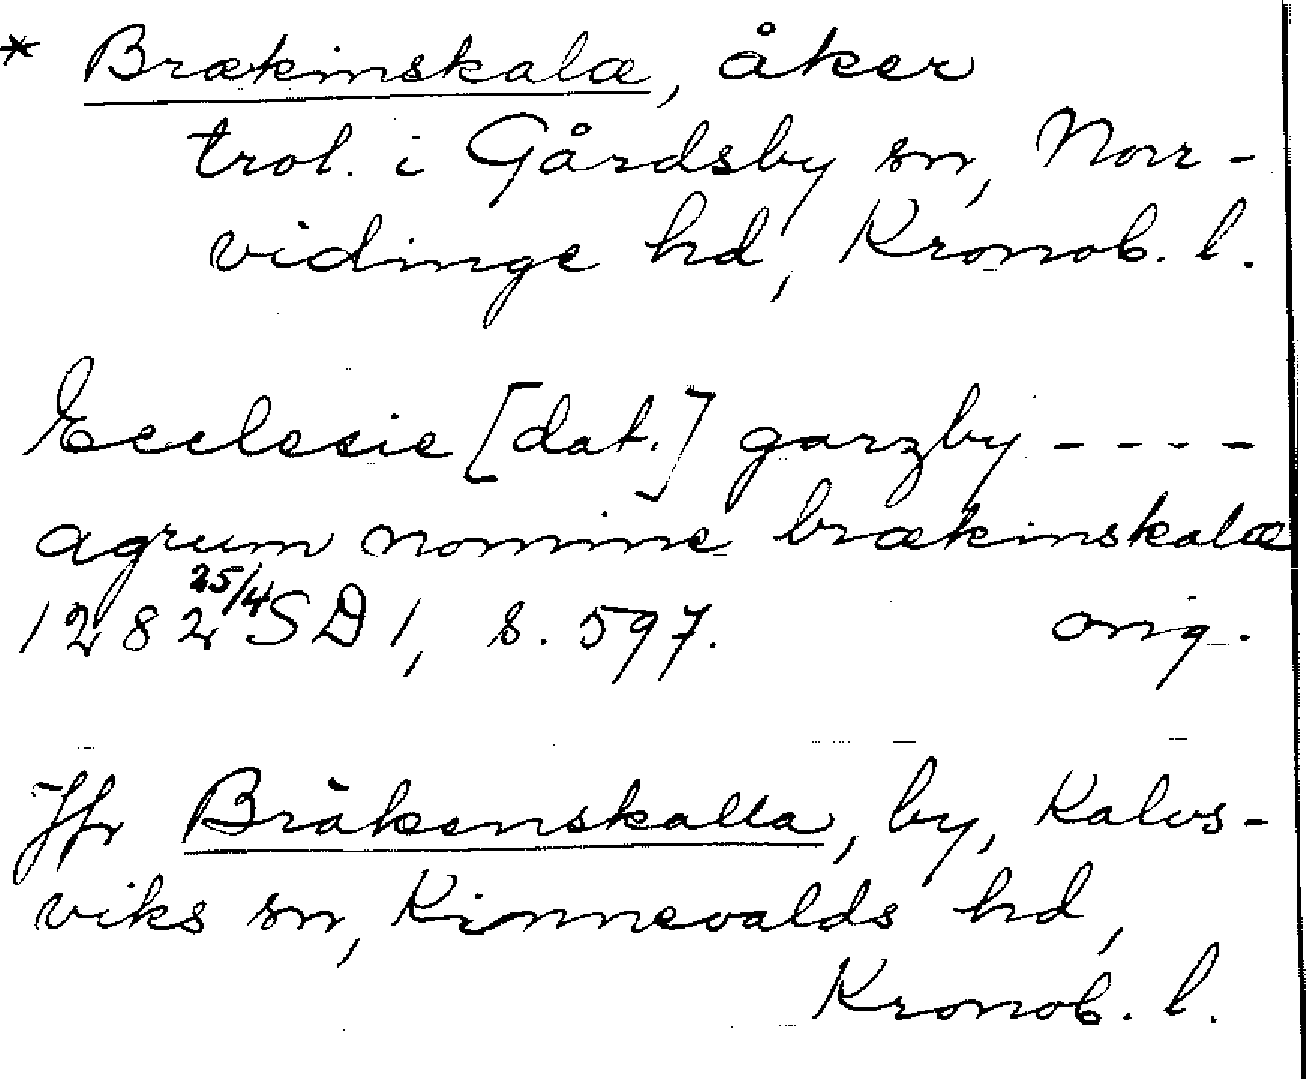 * Brækinskalæ, åker
trol. i Gårdsby sn, Norr-
vidinge hd, Kronob. l.
Ecclesie [dat.] garzby - - - -
agrum nomine brækinskalæ
1282 25/4 SD 1, s. 597. orig.
Jfr Bråkenskalla, by, Kalvs-
viks sn, Kinnevalds hd,
Kronob. l.